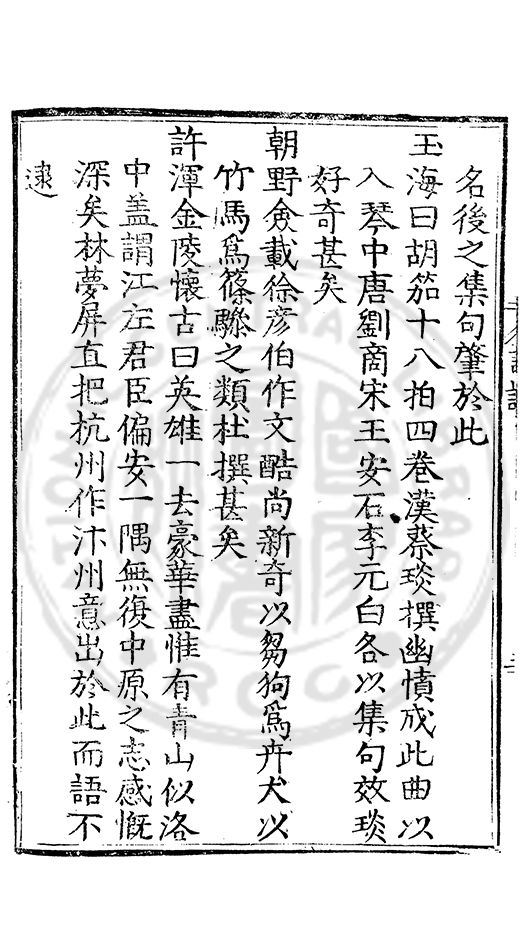 名後之集句肇於此
玉海曰胡笳十八拍四卷漢蔡琰撰幽憤成此曲以
入琴中唐劉商宋王安石李元白各以集句效琰
好奇甚矣
朝野僉載徐彥伯作文酷尚新奇以芻狗爲卉犬以
竹馬爲篠驂之類杜撰甚矣
許渾金陵懷古曰英雄一去豪華盡惟有青山似洛
中盖謂江左君臣偏安一隅無復中原之志感慨
深矣林夢屏直把杭州作汴州意出於此而語不
逮